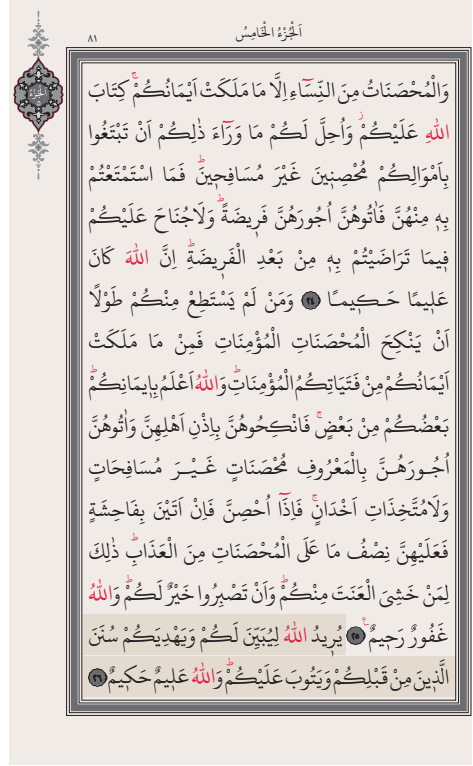 اَلْجُزْءُ الْخَامِسُ
٨١
وَالْمُحْصَنَاتُ مِنَ النِّسَٓاءِ اِلَّا مَا مَلَكَتْ اَيْمَانُكُمْۚ كِتَابَ
اللّٰهِ عَلَيْكُمْۚ وَاُحِلَّ لَكُمْ مَا وَرَٓاءَ ذٰلِكُمْ اَنْ تَبْتَغُوا
بِاَمْوَالِكُمْ مُحْصِن۪ينَ غَيْرَ مُسَافِح۪ينَۜ فَمَا اسْتَمْتَعْتُمْ
بِه۪ مِنْهُنَّ فَاٰتُوهُنَّ اُجُورَهُنَّ فَر۪يضَةًۜ وَلَاجُنَاحَ عَلَيْكُمْ
ف۪يمَا تَرَاضَيْتُمْ بِه۪ مِنْ بَعْدِ الْفَر۪يضَةِۜ اِنَّ اللّٰهَ كَانَ
عَل۪يمًا حَك۪يمًا ﴿٢٤﴾ وَمَنْ لَمْ يَسْتَطِعْ مِنْكُمْ طَوْلًا
اَنْ يَنْكِحَ الْمُحْصَنَاتِ الْمُؤْمِنَاتِ فَمِنْ مَا مَلَكَتْ
اَيْمَانُكُمْ مِنْ فَتَيَاتِكُمُ الْمُؤْمِنَاتِۜ وَاللّٰهُ اَعْلَمُ بِا۪يمَانِكُمْۜ
بَعْضُكُمْ مِنْ بَعْضٍۚ فَانْكِحُوهُنَّ بِاِذْنِ اَهْلِهِنَّ وَاٰتُوهُنَّ
اُجُورَهُنَّ بِالْمَعْرُوفِ مُحْصَنَاتٍ غَيْرَ مُسَافِحَاتٍ
وَلَامُتَّخِذَاتِ اَخْدَانٍۚ فَاِذَٓا اُحْصِنَّ فَاِنْ اَتَيْنَ بِفَاحِشَةٍ
فَعَلَيْهِنَّ نِصْفُ مَا عَلَى الْمُحْصَنَاتِ مِنَ الْعَذَابِۜ ذٰلِكَ
لِمَنْ خَشِيَ الْعَنَتَ مِنْكُمْۜ وَاَنْ تَصْبِرُوا خَيْرٌ لَكُمْۜ وَاللّٰهُ
غَفُورٌ رَح۪يمٌ۟ ﴿٢٥﴾ يُر۪يدُ اللّٰهُ لِيُبَيِّنَ لَكُمْ وَيَهْدِيَكُمْ سُنَنَ
الَّذ۪ينَ مِنْ قَبْلِكُمْ وَيَتُوبَ عَلَيْكُمْۜ وَاللّٰهُ عَل۪يمٌ حَك۪يمٌ ﴿٢٦﴾